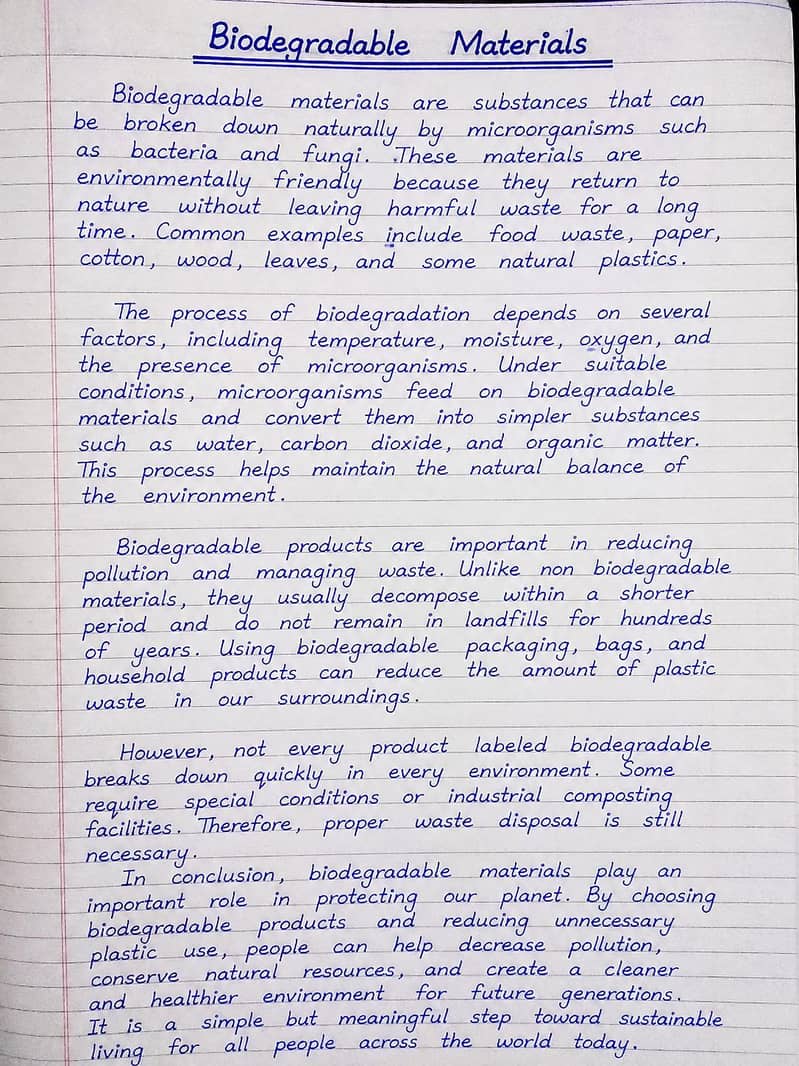 Biodegradable Materials
Biodegradable materials are substances that can
be broken down naturally by microorganisms such
as bacteria and fungi. These materials are
environmentally friendly because they return to
nature without leaving harmful waste for a long
time. Common examples include food waste, paper,
cotton, wood, leaves, and some natural plastics.
The process of biodegradation depends on several
factors, including temperature, moisture, oxygen, and
the presence of microorganisms. Under suitable
conditions, microorganisms feed on biodegradable
materials and convert them into simpler substances
such as water, carbon dioxide, and organic matter.
This process helps maintain the natural balance of
the environment.
Biodegradable products are important in reducing
pollution and managing waste. Unlike non biodegradable
materials, they usually decompose within a shorter
period and do not remain in landfills for hundreds
of years. Using biodegradable packaging, bags, and
household products can reduce the amount of plastic
waste in our surroundings.
However, not every product labeled biodegradable
breaks down quickly in every environment. Some
require special conditions or industrial composting
facilities. Therefore, proper waste disposal is still
necessary.
In conclusion, biodegradable materials play an
important role in protecting our planet. By choosing
biodegradable products and reducing unnecessary
plastic use, people can help decrease pollution,
conserve natural resources, and create a cleaner
and healthier environment for future generations.
It is a simple but meaningful step toward sustainable
living for all people across the world today.